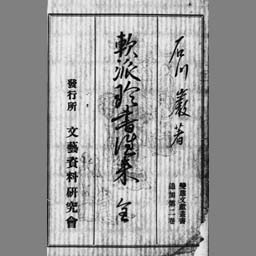 石川巖著
軟派珍書往来 全
變態文献叢書
追加第二巻
發行所 文藝資料研究會